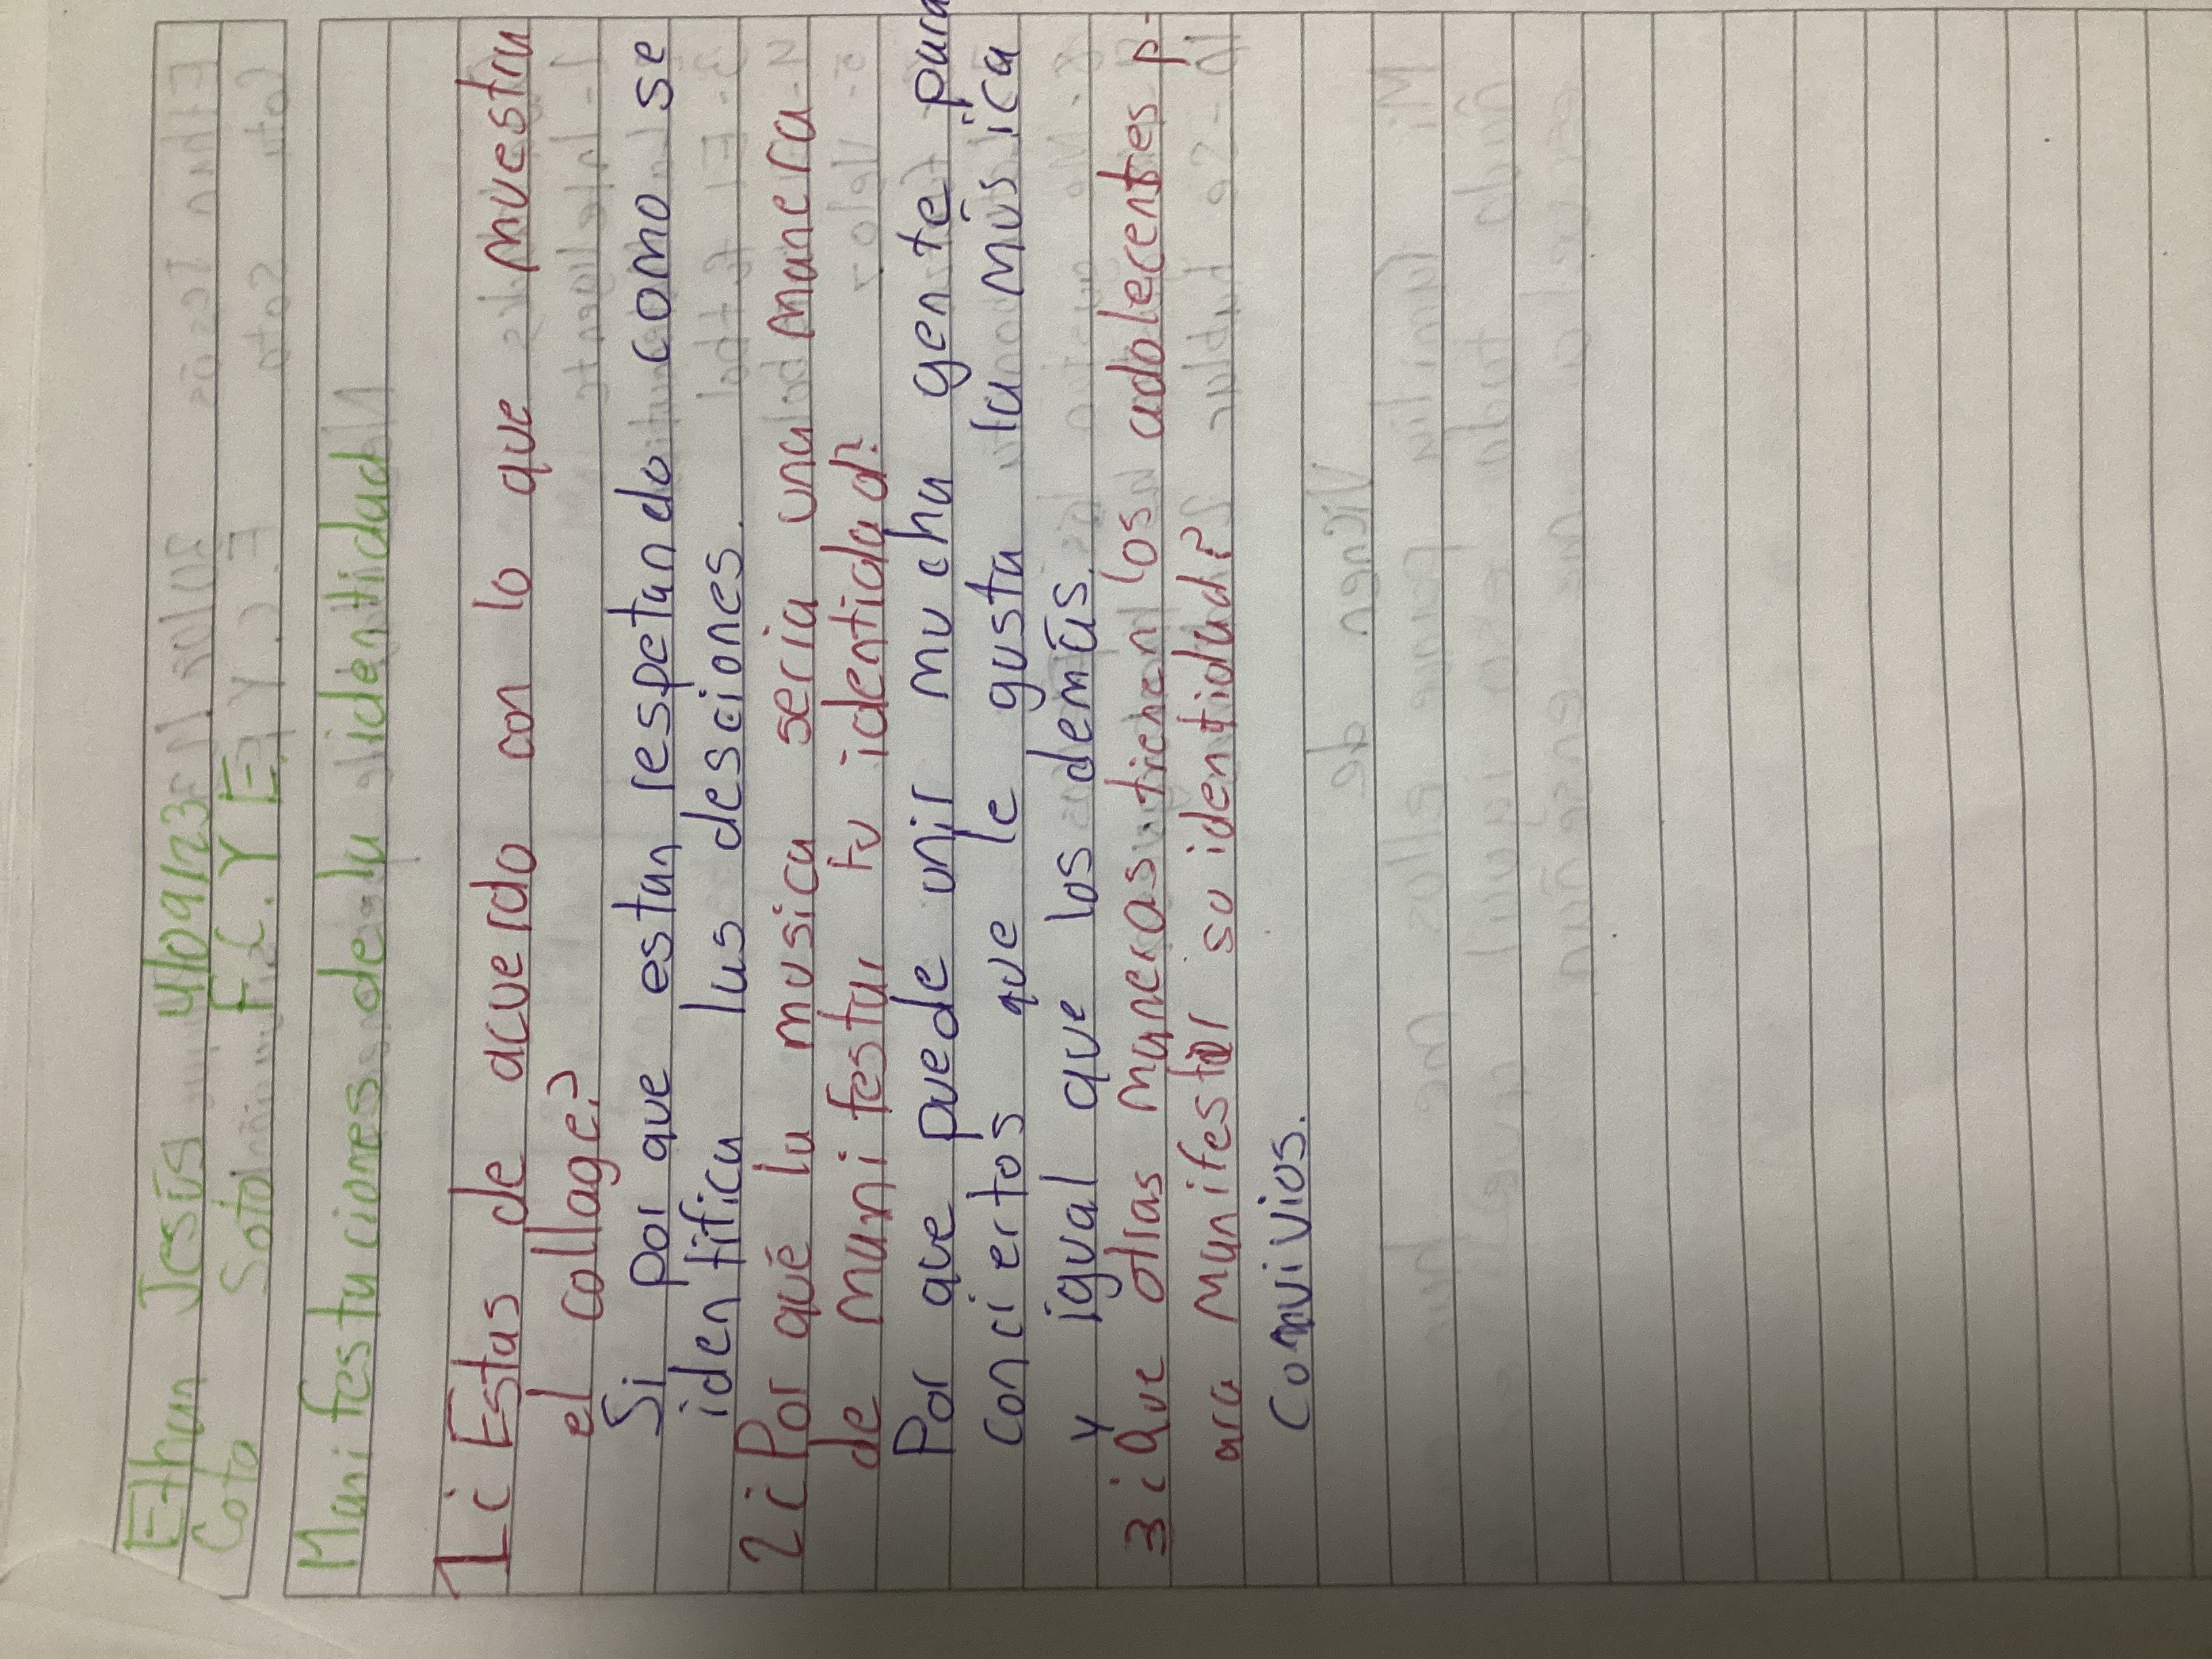 Ethan Jesús 4/09/23
Cota Soto F.C.Y E
Manifestaciones de la identidad
1 ¿Estas de acuerdo con lo que muestra
el collage?
Si por que estan respetando como se
identifica las desciones.
2 ¿Por qué la musica seria una manera
de manifestar tu identidad?
Por que puede unir mucha gente para
conciertos que le gusta la música
y igual que los demás.
3 ¿Que otras maneras tienen los adolecentes p-
ara manifestar su identidad?
Convivios.